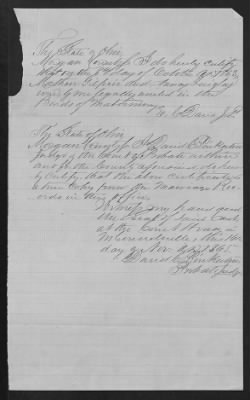 The State of Ohio
Morgan County ss I do hereby certify
that on the day of October AD 1863
were by me legally united in the
Bonds of Matrimony
Davis J.P.
The State of Ohio
Morgan County ss I David
Judge of the Court of Probate within
and for the County aforesaid do
certify that the above certificate is
a true Copy from the Marriage Rec
ords in this office
Witness my hand and
the Seal of said Court
at the Court House in
McConnelsville this
day of Nov AD 1865
David
Probate Judge